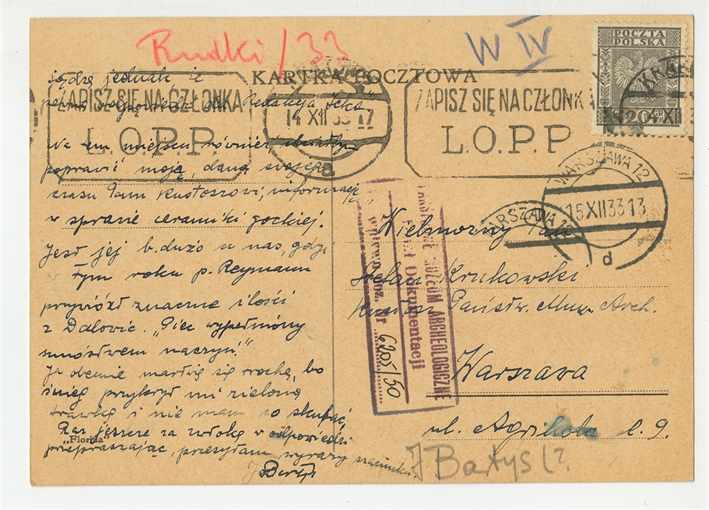 Rudki/33
W IV
KARTKA POCZTOWA
POCZTA
POLSKA
20
ZAPISZ SIĘ NA CZŁONKA
L.O.P.P.
14 XII 33 17
ZAPISZ SIĘ NA CZŁONK
L.O.P.P.
WARSZAWA 12
15 XII 33 13
d
WARSZAWA 12
Sądzę jednak że
Redakcja
Na tem miejscu również
poprawić moją, daną swojego
czasu Panu Kustoszowi, informację
w sprawie ceramiki gockiej.
Jest jej b. dużo u nas, gdyż
w tym roku p. Reymann
przywiózł znaczne ilości
z Dalovic. „Piec wypełniony
mnóstwem naczyń".
Ja obecnie martwię się trochę, bo
śnieg przykrył mi zieloną
trawkę i nie mam co skubać,
Raz jeszcze za zwłokę w odpowiedzi
przepraszając, przesyłam wyrazy szacunku
„Florida"
MUZEUM ARCHEOLOGICZNE
Dział Dokumentacji
6205/50
Wielmożny Pan
Stefan Krukowski
Kustosz Państw. Muz. Arch.
Warszawa
ul. Agrikola l. 9.
J Bartys (?